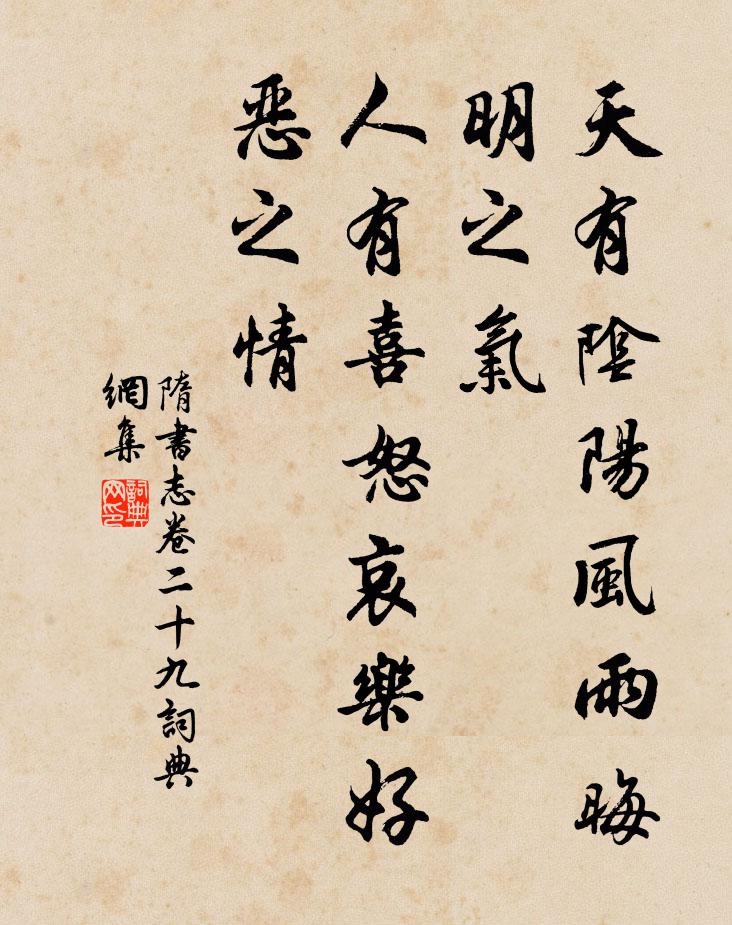 天有陰陽風雨晦
明之氣
人有喜怒哀樂好
惡之情
隋書志卷二十九詞典
網集
詞典
网印